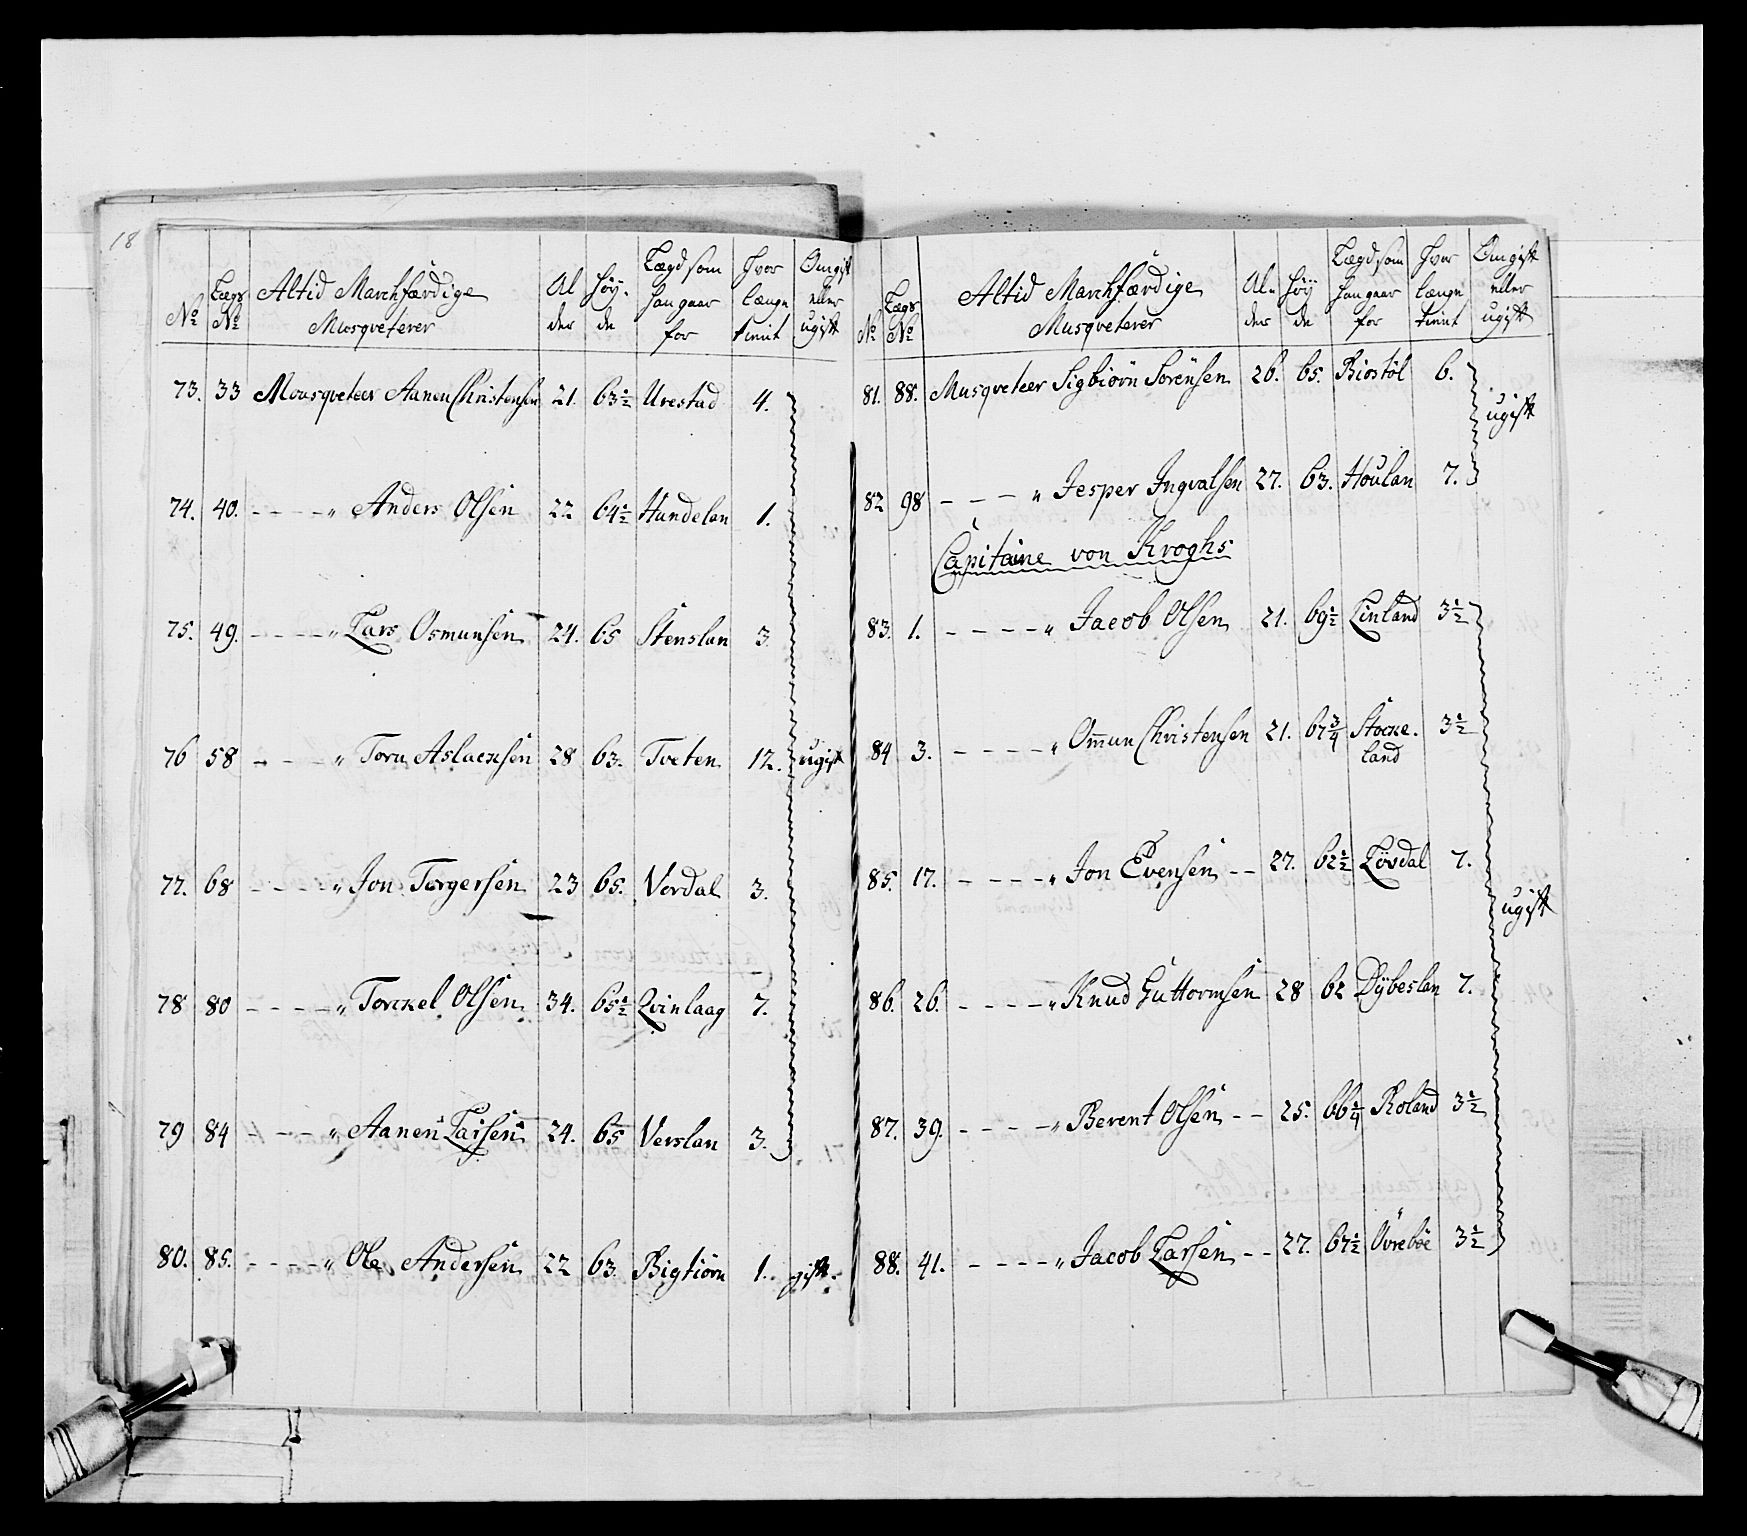 18
No
Lægs No
Altid Marchfærdige Musqveterer
Al der
Höy de
Lægd som han gaar for
Hvor længe tient
Om gift eller ugift
73. 33 Mousqveteer Aanen Christensen 21. 63½ Urestad 4.
74. 40. - - - - " Anders Olsen 22 64½ Hundelan 1.
75. 49. - - - - " Lars Osmunsen 24. 65 Stenslan 3
76 58 - - - " Toru Aslacksen 28 63. Tveten 12. ugift
77. 68 - - - - " Jon Torgersen 23 65. Vordal 3.
78 80 - - - - " Torckel Olsen 34. 65½ Qvinlaag 7.
79 84 - - - - " Aanen Larsen 24. 65 Verslan 3.
80. 85. - - - - " Ole Andersen 22 63 Bigtiörn 1. gift.
No
Lægs No
Altid Marchfærdige Musqveterer
Al- der
Höy de
Lægd som han gaar for
Hvor længe tient
Om gift eller ugift
81. 88. Musqveteer Sigbiörn Sörensen 26. 65. Biostöl 6.
ugift
82 98 - - - " Jesper Ingvalsen 27. 63. Houlan 7.
Capitaine von Kroghs
83. 1. - - - - " Jacob Olsen 21. 69½ Linland 3½
84 3. - - - - " Omun Christensen 21. 67¾ Stocke-
land 3½
85. 17. - - - - " Jon Evensen - - 27. 62½ Lövdal 7.
ugift
86. 26. - - - - " Knud Guttormsen 28 62 Dybeslan 7.
87. 39. - - - - " Berent Olsen - - 25. 66¼ Roland 3½
88. 41. - - - - " Jacob Larsen - - 27. 67½ Övreböe 3½